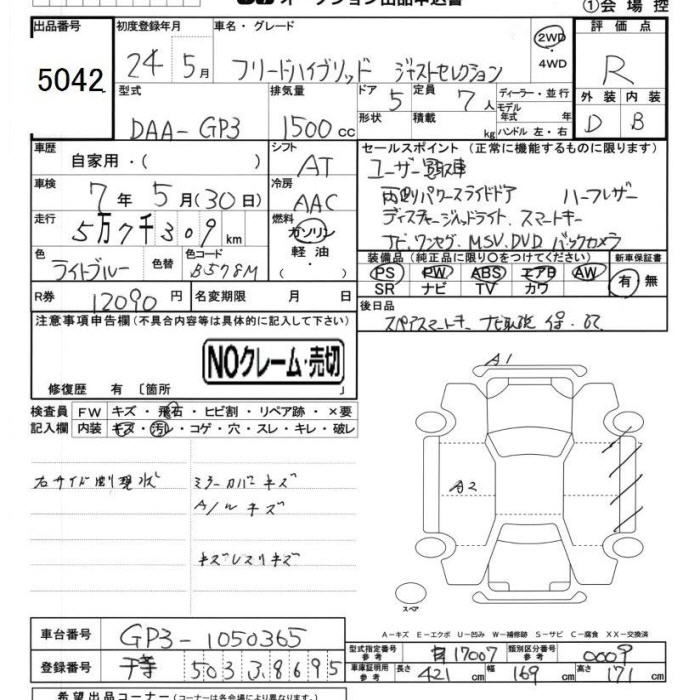 オークション出品申込書
①会場控
出品番号 初度登録年月 車名・グレード 評価点
5042 24年5月 フリードハイブリッド ジャストセレクション 2WD・4WD R
型式 排気量 ドア 5 定員 7人 ディーラー・並行 外装 内装
DAA-GP3 1500cc 形状 積載 kg モデル年式 年 ハンドル 左・右 D B
車歴 自家用・( ) シフト AT セールスポイント (正常に機能するものに限ります)
ユーザー買取車
車検 7年5月(30日) 冷房 AAC 両側パワースライドドア ハーフレザー
ディスチャージヘッドライト、スマートキー
走行 5万7千309km 燃料 ガソリン 軽油 ・( ) ナビ、ワンセグ、MSV、DVD バックカメラ
色 ライトブルー 色替 色コード B578M 装備品 (純正品に限り〇をつけてください) 新車保証書
PS PW ABS エアB AW 有・無
SR ナビ TV カワ
R券 12090円 名変期限 月 日 後日品
スペアスマートキー ナビ取説 保・R2
注意事項申告欄 (不具合内容等は具体的に記入して下さい)
NOクレーム・売切
修復歴 有 〔箇所 」
A1
検査員 FW キズ・飛石・ヒビ割・リペア跡・×要
記入欄 内装 キズ・汚レ・コゲ・穴・スレ・キレ・破レ
右サイド割現状 ミラーカバーキズ
A/ルキズ
A2
キズレスリキズ
スペア
A-キズ E-エクボ U-凹み W-補修跡 S-サビ C-腐食 XX-交換済
車台番号 GP3-1050365 型式指定番号 参考 17007 類別区分番号 参考 0009
登録番号 5033.8695 車庫証明用 参考 長さ 421cm 幅 169cm 高さ 171cm
希望出品コーナー (コーナーは各会場により異なります)